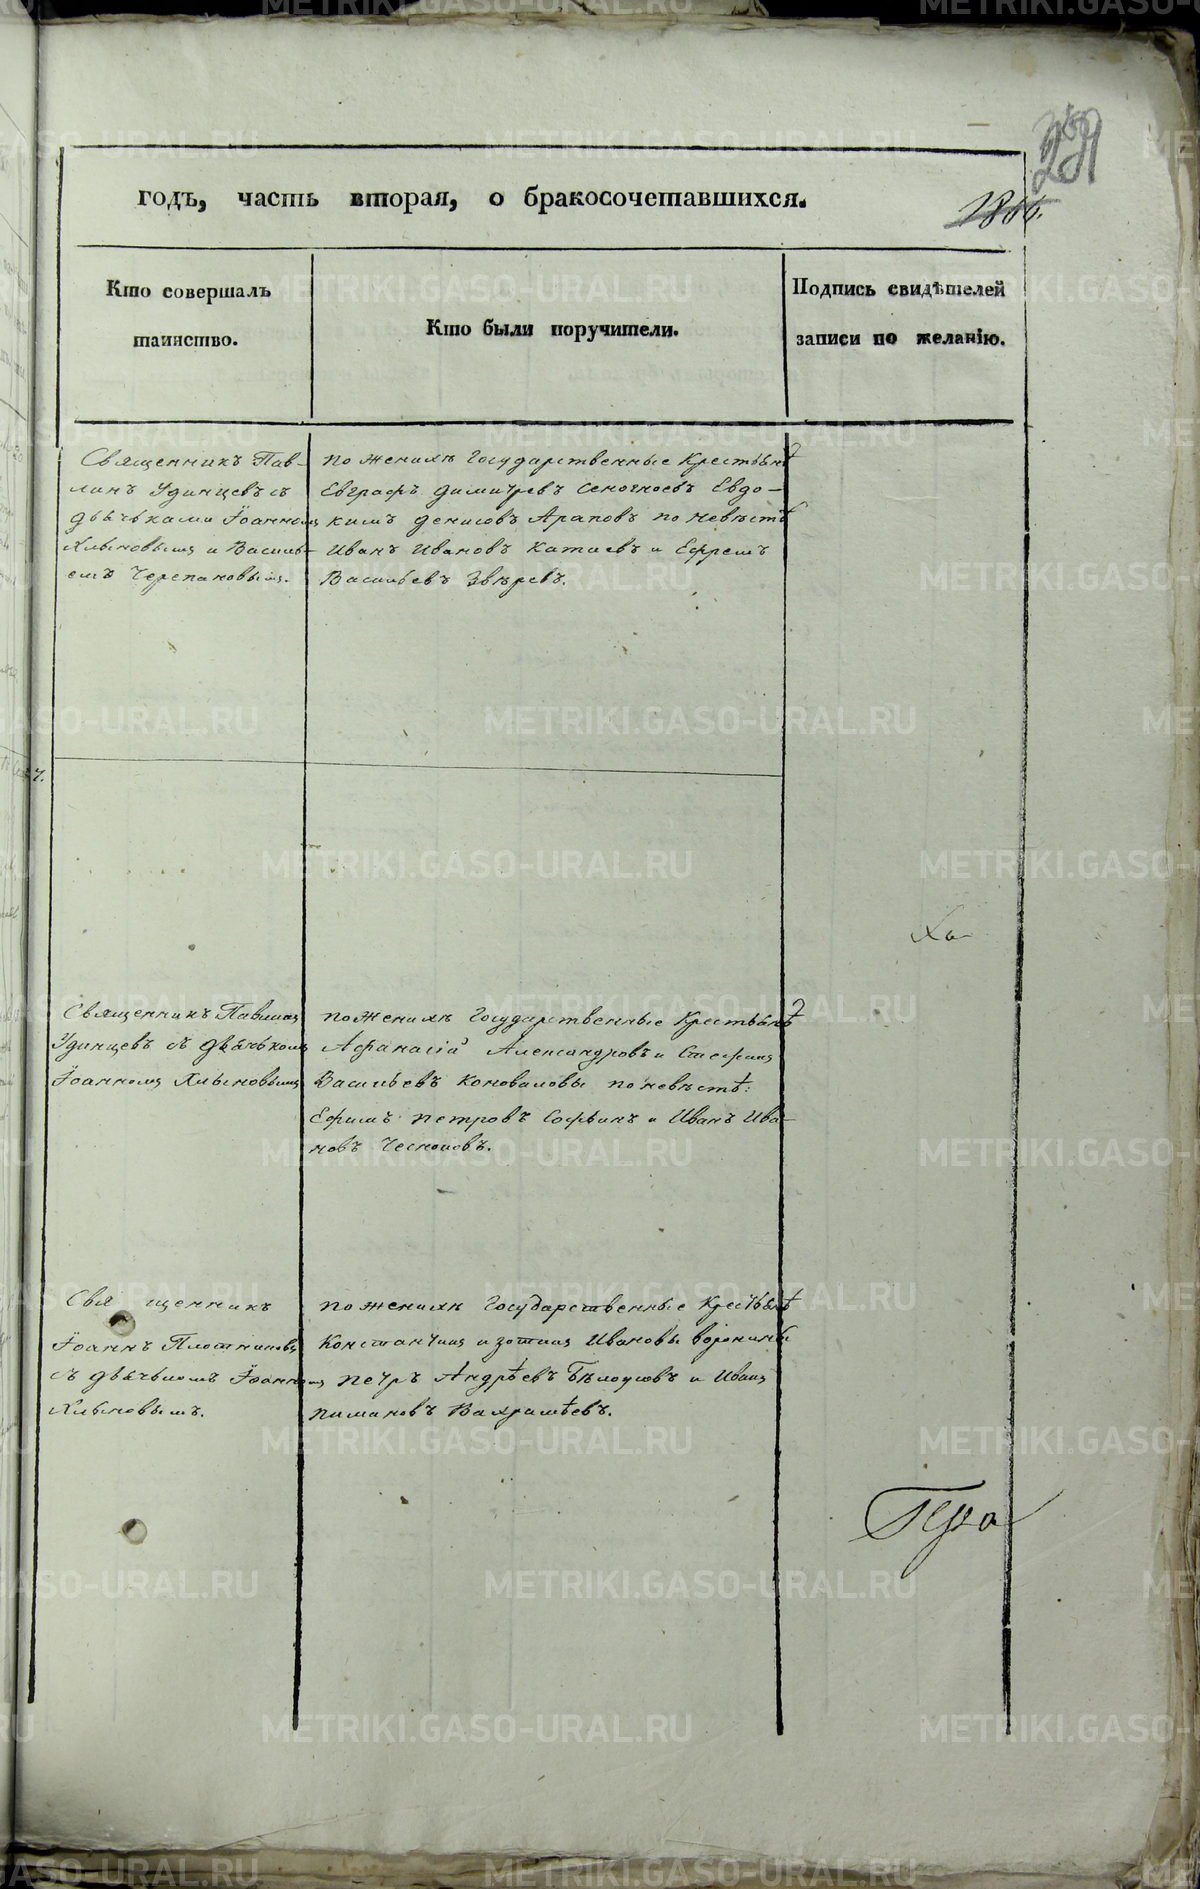 годъ, часть вторая, о бракосочетавшихся.
Кто совершалъ
таинство.
Кто были поручители.
Подпись свидѣтелей
записи по желанію.
Священникъ Пав-
линъ Удинцевъ съ
дьячьками Іоанномъ
Хлыновымъ и Василь-
емъ Черепановымъ.
по женихѣ Государственные Крестьяне
Евграфъ Димитревъ Евдо-
кимъ Денисовъ Араповъ по невѣстѣ
Иванъ Ивановъ Катаевъ и Ефремъ
Васильевъ Звѣревъ.
Священникъ Павлинъ
Удинцевъ съ дьячькомъ
Іоанномъ Хлыновымъ
по женихѣ Государственные Крестьянѣ
Афанасій Александровъ и Стефанъ
Васильевъ Коноваловы по невѣстѣ:
Ефимъ Петровъ Софьинъ и Иванъ Ива-
новъ Чесноковъ.
Священникъ
Іоаннъ Плотниковъ
съ дьячькомъ Іоанномъ
Хлыновымъ.
по женихѣ Государственные
Константинъ и Зотикъ Ивановы Воронины
Петръ Андрѣевъ Бѣлоусовъ и Иванъ
Пимановъ Вахрамѣевъ.
METRIKI.GASO-URAL.RU